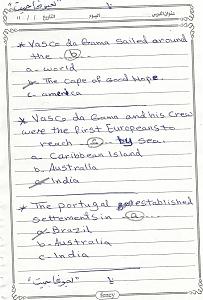 عنوان الدرس اليوم التاريخ / / ١١
* Vasco da Gama sailed around
the (b)
a- world
b- The cape of Good Hope.
c- america
* Vasco da Gama and his crew
were the first Europeans to
reach (a) by sea.
a- Caribbean Island
b- Australia
c- India
* The portugal established
settlements in (a)
a- Brazil
b- Australia
c- India
fancy